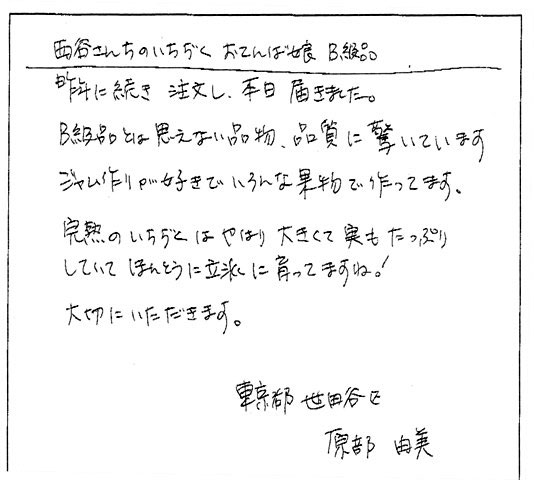 西谷さんちのいちぢく おてんば娘 B級品
昨年に続き 注文し、本日 届きました。
B級品とは思えない品物、品質に驚いています
ジャム作りが好きでいろんな果物で作ってます。
完熟のいちぢくはやはり大きくて実もたっぷり
していてほんとうに立派に育ってますね!
大切にいただきます。
東京都 世田谷区
原部 由美